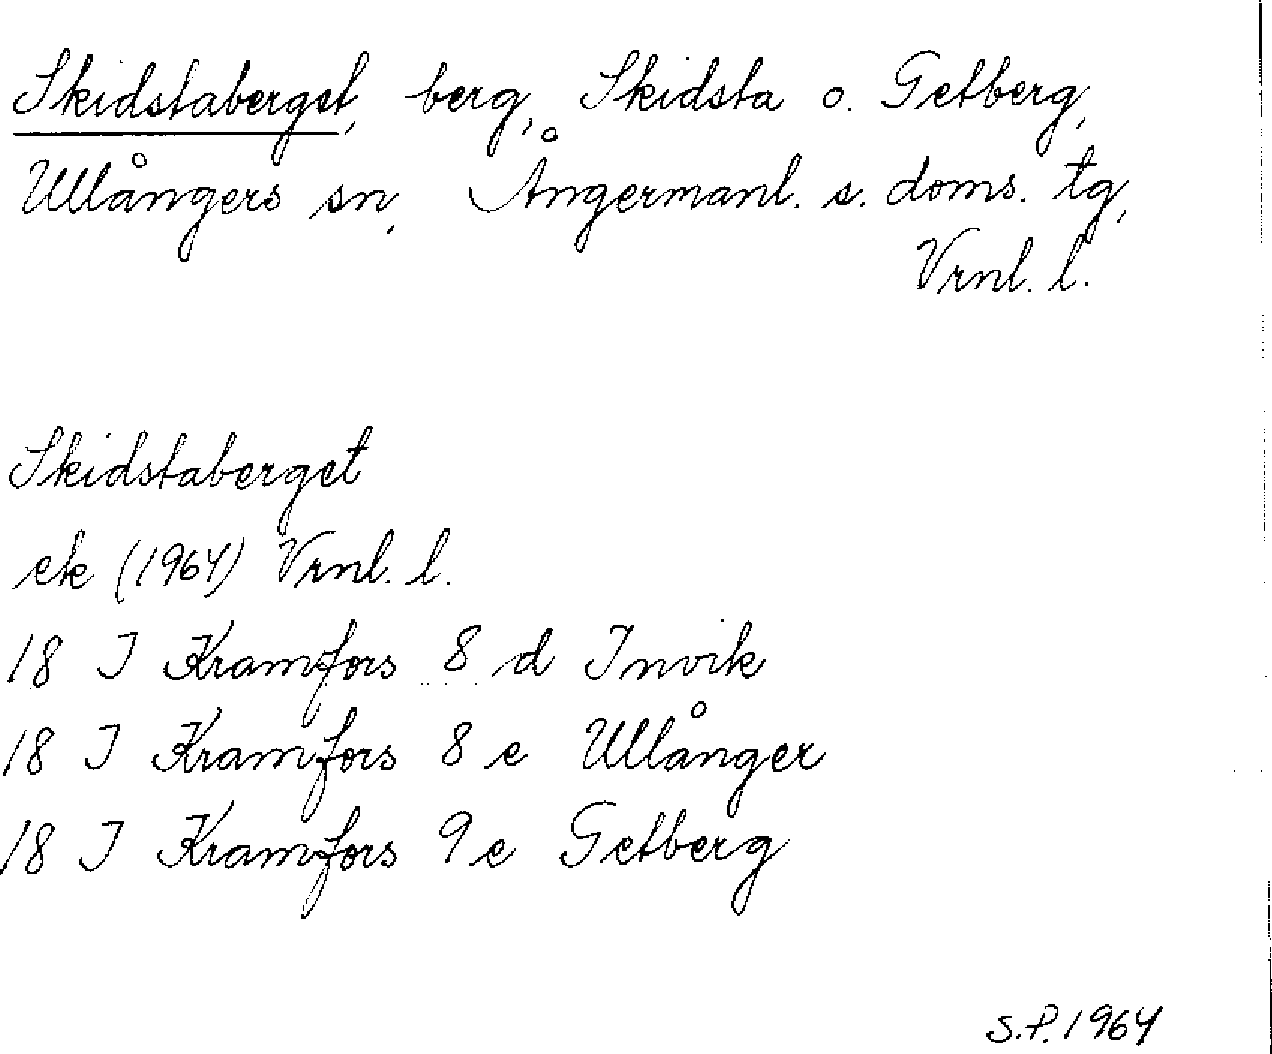 Skidstaberget, berg, Skidsta o. Getberg,
Ullångers sn, Ångermanl. s. doms. tg,
Vrnl. l.
Skidstaberget
ek (1964) Vrnl. l.
18 I Kramfors 8 d Invik
18 I Kramfors 8 e Ullånger
18 I Kramfors 9 e Getberg
S.P. 1964